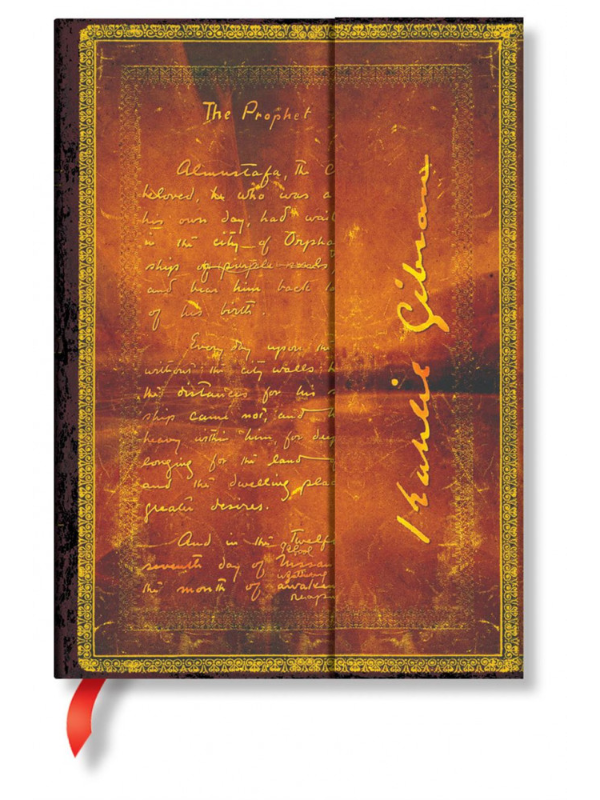 The Prophet
Almustafa, the C
beloved, he who was a
his own day, had wait
in the city of Orpha
ships of purple sails
and bear him back to
of his birth.
Every day upon the
without the city walls h
the distances for his s
ship came not, and h
heavy within him, for deep
longing for the land
and the dwelling plac
greater desires.
And in the Twelf
seventh day of Nissan
weathering
the month of awaken
reapi
Kahlil Gibran